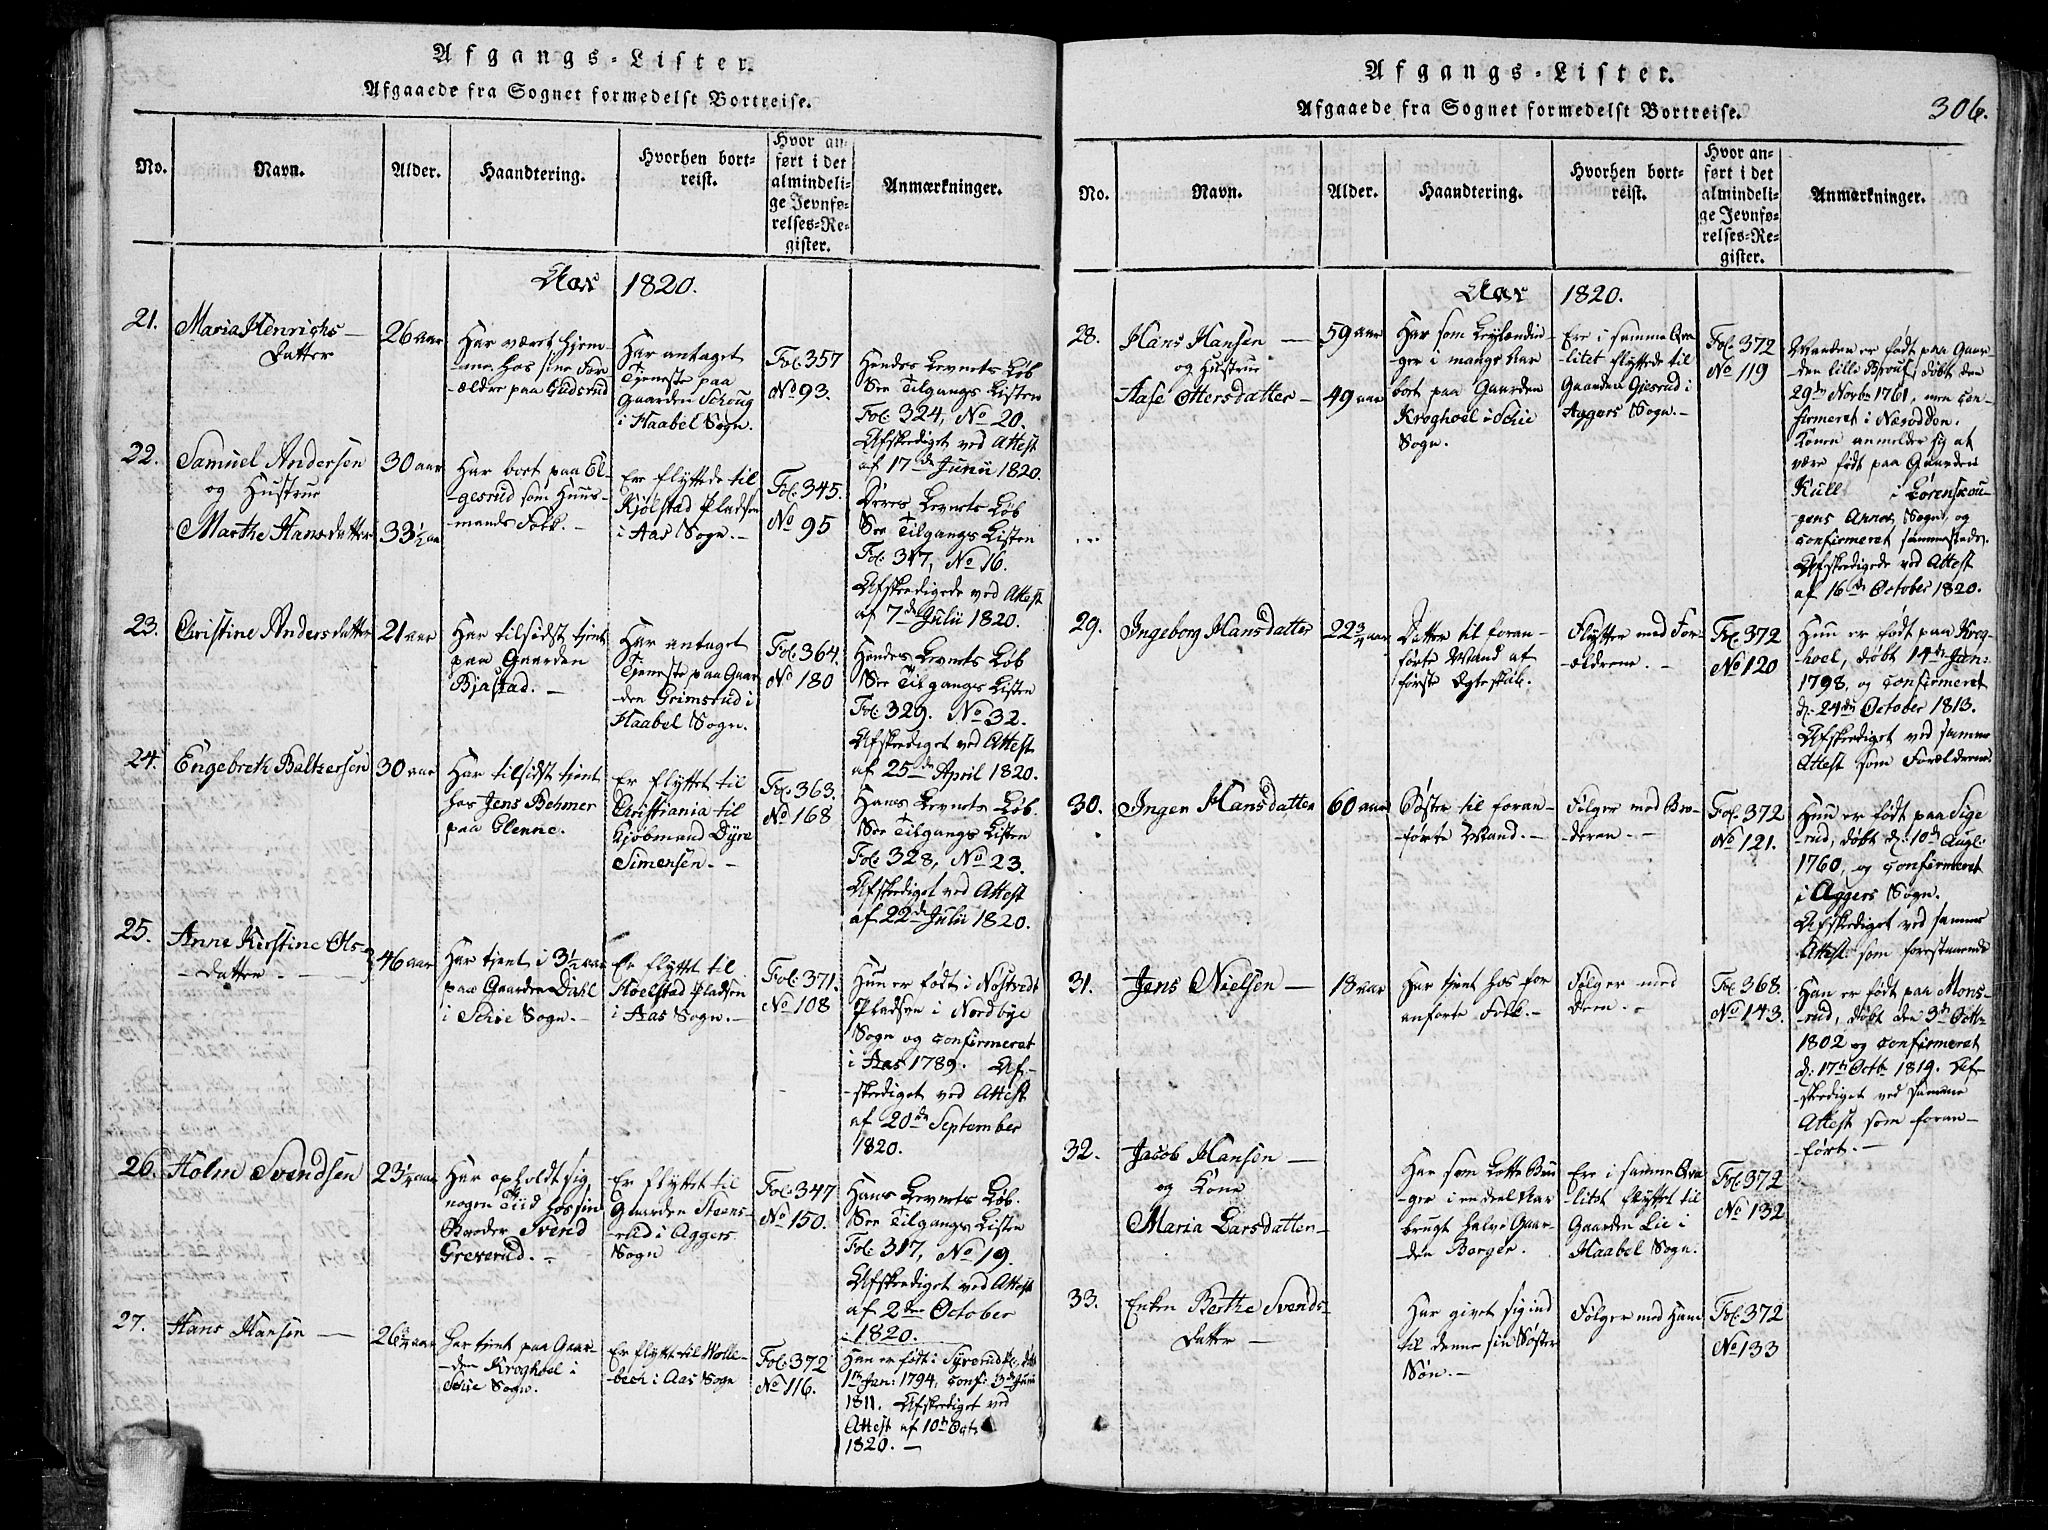 Afgangs-Lister.
Afgaaede fra Sognet formedelst Bortreise.
No.
Navn.
Alder.
Haandtering.
Hvorhen bort-
reist.
Hvor an-
ført i det
almindeli-
ge Jevnfø-
relses-Re-
gister.
Anmærkninger.
Aar 1820.
21.
Maria Henrichs-
datter
26 aar
Har været hjem-
me hos sine For-
ældre paa Gudsrud
Har antaget
Tjeneste paa
Gaarden Schoug
i Haabel Sogn.
Fol. 357
No 93.
Hendes Levnets Løb
See Tilgangs Listen
Fol. 324, No 20.
Afskediget ved Attest
af 17de Junii 1820.
22.
Samuel Andersen
og Hustrue
Marthe Hansdatter
30 aar
33½ aar
Har boet paa El-
gesrud som Huus-
mands Folk.
Ere flyttede til
Kjølstad Pladsen
i Aas Sogn.
Fol. 345.
No 95
Deres Levnets Løb
See Tilgangs Listen
Fol. 317, No 16.
Afskedigede ved Attest
af 7de Julii 1820.
23.
Christine Andersdatter
21 aar
Har tilsidst tjent
paa Gaarden
Bjastad.
Har antaget
Tjeneste paa Gaar-
den Grimsrud i
Haabel Sogn.
Fol. 364.
No 180
Hendes Levnets Løb
See Tilgangs Listen
Fol. 329. No 32.
Afskediget ved Attest
af 25de April 1820.
24.
Engebreth Baltzersen
30 aar
Har tilsidst tjent
hos Jens Behmer
paa Glenne.
Er flyttet til
Christiania til
Kjøbmand Dyre
Simensen.
Fol. 363.
No 168
Hans Levnets Løb
See Tilgangs Listen
Fol. 328, No 23.
Afskediget ved Attest
af 22de Julii 1820.
25.
Anne Kirstine Ols-
datter
46 aar
Har tjent i 3½ aar
paa Gaarden Dahl
i Schie Sogn.
Er flyttet til
Hoelstad Pladsen
i Aas Sogn.
Fol. 371.
No 108
Hun er født i Nøstvedt
Pladsen i Nordbye
Sogn og confirmeret
i Aas 1789. Af-
skediget ved Attest
af 20de September
1820.
26.
Holm Svendsen
23¼ aar
Har opholdt sig
nogen Tiid hos sin
Broder Svend
Greverud.
Er flyttet til
Gaarden Steens-
rud i Aggers
Sogn
Fol. 347
No 150.
Hans Levnets Løb.
See Tilgangs Listen
Fol. 317, No 19.
Afskediget ved Attest
af 2den October
1820.
27.
Hans Hansen
26¾ aar
Har tjent paa Gaar-
den Kroghoel i
Schie Sogn.
Er flyttet til Wolle-
bech i Aas Sogn
Fol. 372
No 116.
Han er født i Syverud
1ste Jan: 1794, conf: 3de Junii
1811. Afskediget ved
Attest af 10de Octb
1820.
Afgangs-Lister.
Afgaaede fra Sognet formedelst Bortreise.
306.
No.
Navn.
Alder.
Haandtering.
Hvorhen bort-
reist.
Hvor an-
ført i det
almindeli-
ge Jevnfø-
relses-Re-
gister.
Anmærkninger.
Aar 1820.
28.
Hans Hansen
og Hustrue
Aase Ottersdatter
59 aar
49 aar
Har som Leylændin-
ger i mange Aar
boet paa Gaarden
Kroghoel i Schie
Sogn.
Ere i samme Qva-
litet flyttede til
Gaarden Gjesrud i
Aggers Sogn.
Fol. 372
No 119
Manden er født paa Gaar-
den lille Brevig, døbt den
29de Novbr 1761, men con-
firmeret i Næsodden.
Konen anmelder sig at
være født paa Gaarden
Kull i Lørenskou-
gens Annex Sogn, og
confirmeret sammesteds.
Afskedigede ved Attest
af 16de October 1820.
29.
Ingeborg Hansdatter
22¾ aar
Datter til foran-
førte Mand af
første Egteskab.
Flytter med For-
ældrene.
Fol. 372
No 120
Hun er født paa Krog-
hoel, døbt 14de Jan:
1798, og confirmeret
d: 24de October 1813.
Afskediget ved samme
Attest som Forældrene.
30.
Inger Hansdatter
60 aar
Søster til foran-
førte Mand.
Følger med Bro-
deren.
Fol. 372
No 121.
Hun er født paa Sige-
rud, døbt d: 10de Aug:
1760, og confirmeret
i Aggers Sogn.
Afskediget ved samme
Attest som forestaaende
31.
Jens Nielsen
18 aar
Har tjent hos for
anførte Folk.
Følger med
dem.
Fol. 368.
No 143.
Han er født paa Mons-
rud, døbt den 3de Octb:
1802 og confirmeret
d: 17de Octb 1819. Af-
skediget ved samme
Attest som foran-
ført.
32.
Jacob Hansen
og Kone
Maria Larsdatter
Har som Lotte Bru-
ger i en deel Aar
brugt halve Gaar-
den Berger.
Ere i samme Qva-
litet flyttet til
Gaarden Lie i
Haabel Sogn.
Fol. 372
No 132
33.
Enken Berthe Svends-
datter
Har givet sig ind
til denne sin Søster
Søn.
Følger med ham
Fol. 372
No 133